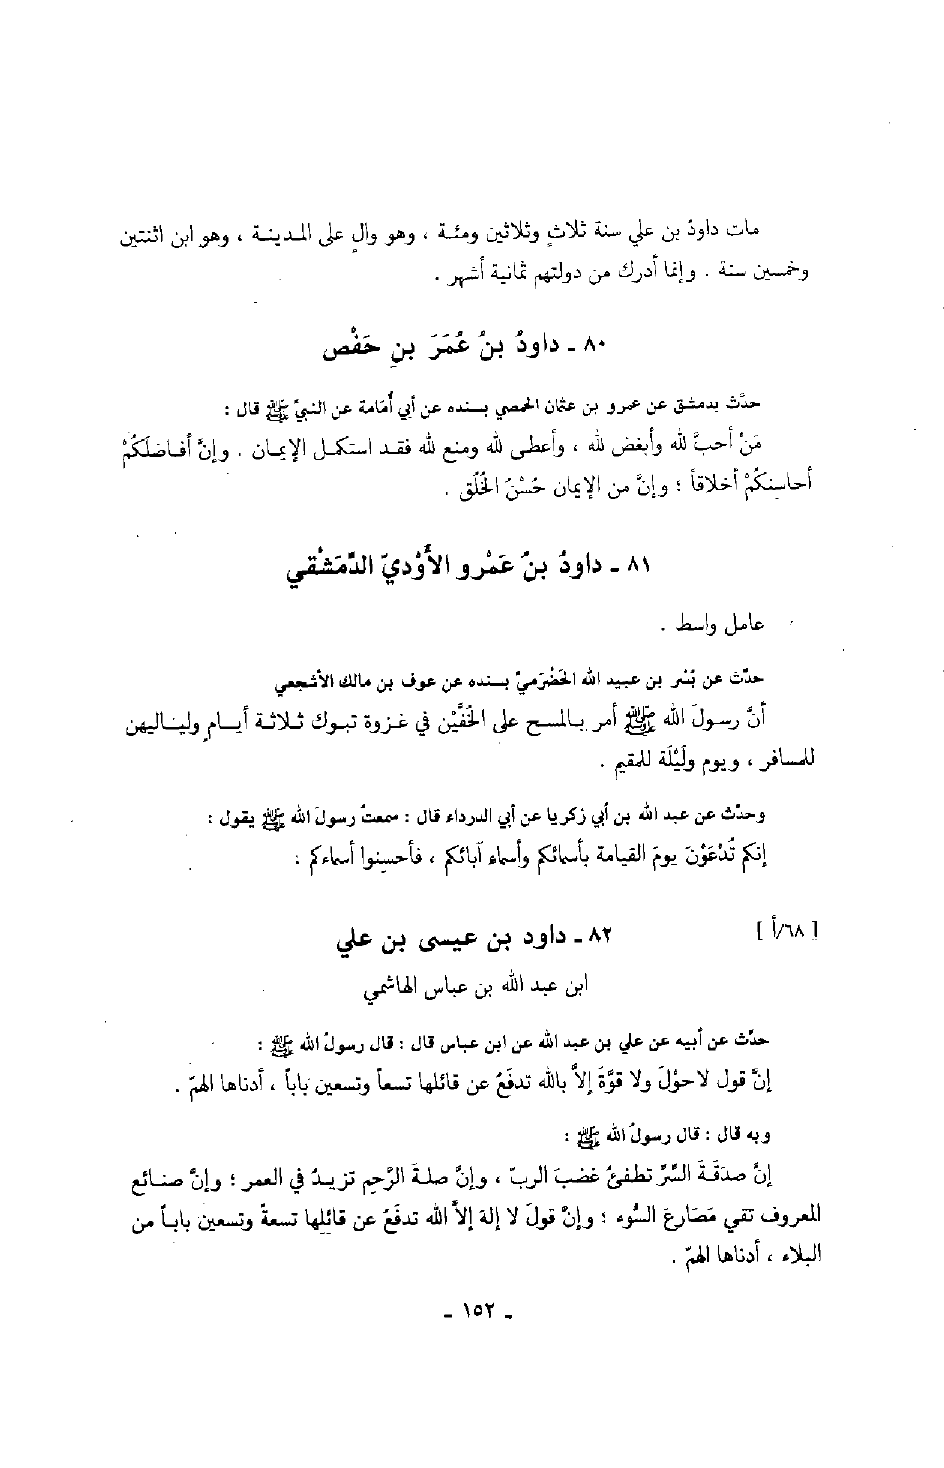 مات داودُ بن علي سنة ثلاثٍ وثلاثين ومئة ، وهو والٍ على المدينة ، وهو ابن اثنتين
وخمسين سنة . وإنما أدرك من دولتهم ثمانية أشهر .
٨٠ ـ داودُ بنُ عُمَرَ بنِ حَفْص
حدَّث بدمشق عن عمرو بن عثمان الحمصي بسنده عن أبي أُمَامة عن النبيّ ﷺ قال :
مَنْ أحبَّ لله وأبغض لله ، وأعطى لله ومنع لله فقد استكمل الإيمان . وإنَّ أفاضلَكُمْ
أحاسِنكُمْ أخلاقاً ؛ وإنَّ من الإيمان حُسْنَ الخُلُق .
٨١ ـ داودُ بنُ عَمْرو الأَوْديّ الدِّمَشْقي
عامل واسط .
حدّث عن بُسْر بن عبيد الله الحَضْرَميّ بسنده عن عوف بن مالك الأشجعي
أنَّ رسولَ الله ﷺ أمر بالمسح على الخُفَّيْن في غزوة تبوك ثلاثة أيامٍ ولياليهن
للمسافر ، ويوم ولَيْلَة للمقيم .
وحدّث عن عبد الله بن أبي زكريا عن أبي الدرداء قال : سمعتُ رسولَ الله ﷺ يقول :
إنكم تُدْعَوْنَ يومَ القيامة بأسمائكم وأسماء آبائكم ، فأحسِنوا أسماءكم :
[ ٦٨/أ ]
٨٢ ـ داود بن عيسى بن علي
ابن عبد الله بن عباس الهاشمي
حدَّث عن أبيه عن علي بن عبد الله عن ابن عباس قال : قال رسولُ الله ﷺ :
إنَّ قول لا حوْلَ ولا قوَّةَ إلاَّ بالله تدفَعُ عن قائلها تسعاً وتسعين باباً ، أدناها الهمّ .
وبه قال : قال رسولُ الله ﷺ :
إنَّ صدَقَةَ السِّرّ تطفئُ غضبَ الربّ ، وإنَّ صلةَ الرَّحِم تزيدُ في العمر ؛ وإنَّ صنائع
المعروف تقي مَصَارعَ السُّوء ؛ وإنَّ قولَ لا إلهَ إلاَّ الله تدفَعُ عن قائلِها تسعةً وتسعين باباً من
البلاء ، أدناها الهمّ .
ـ ١٥٢ ـ